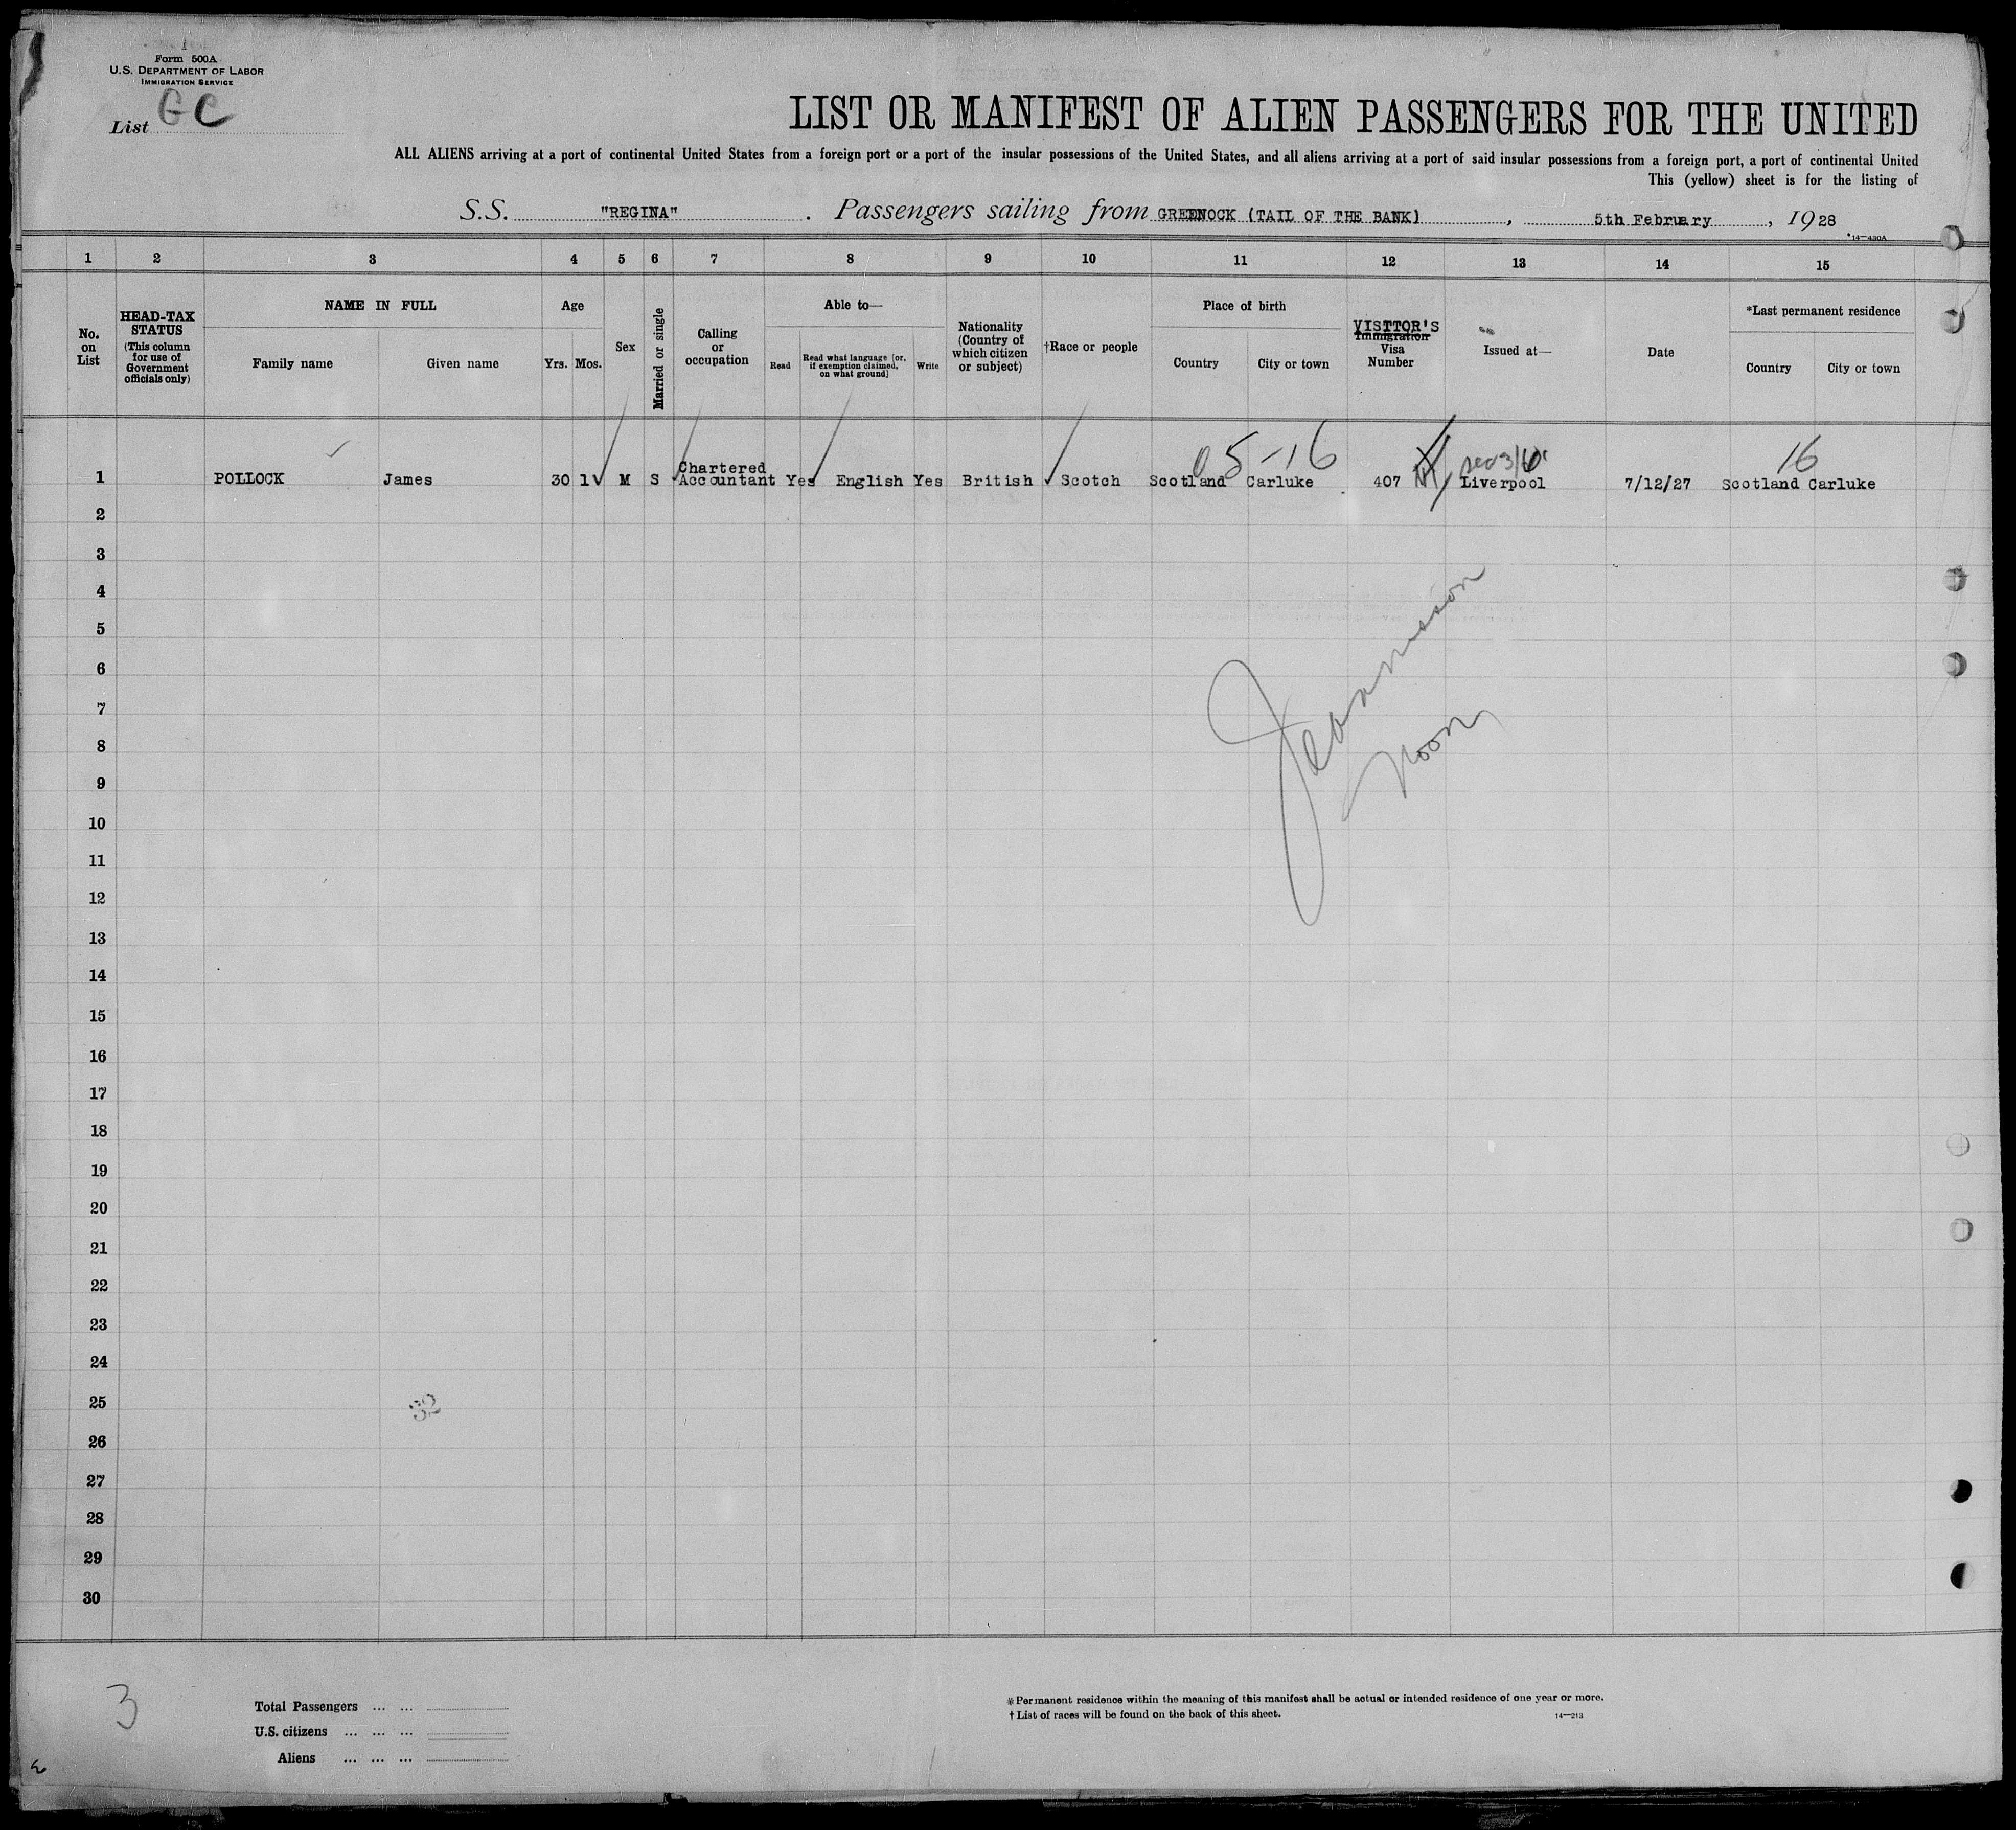 Form 500A
U.S. DEPARTMENT OF LABOR
IMMIGRATION SERVICE
List GC
LIST OR MANIFEST OF ALIEN PASSENGERS FOR THE UNITED
ALL ALIENS arriving at a port of continental United States from a foreign port or a port of the insular possessions of the United States, and all aliens arriving at a port of said insular possessions from a foreign port, a port of continental United
This (yellow) sheet is for the listing of
S.S. "REGINA" . Passengers sailing from GREENOCK (TAIL OF THE BANK) , 5th February , 1928
14—430A
1 2 3 4 5 6 7 8 9 10 11 12 13 14 15
No. on List
HEAD-TAX STATUS (This column for use of Government officials only)
NAME IN FULL
Family name Given name
Age
Yrs. Mos.
Sex
Married or single
Calling or occupation
Able to—
Read Read what language [or, if exemption claimed, on what ground] Write
Nationality (Country of which citizen or subject)
†Race or people
Place of birth
Country City or town
VISITOR'S
Immigration Visa Number
Issued at—
Date
*Last permanent residence
Country City or town
05-16 16
1 POLLOCK James 30 1 M S Chartered Accountant Yes English Yes British Scotch Scotland Carluke 407 Liverpool 7/12/27 Scotland Carluke
2
3
4
5
6
7
8
9
10
11
12
13
14
15
16
17
18
19
20
21
22
23
24
25
26
27
28
29
30
Noon
32
3
Total Passengers ... ...
U.S. citizens ... ... ...
Aliens ... ... ...
*Permanent residence within the meaning of this manifest shall be actual or intended residence of one year or more.
† List of races will be found on the back of this sheet.
14—213